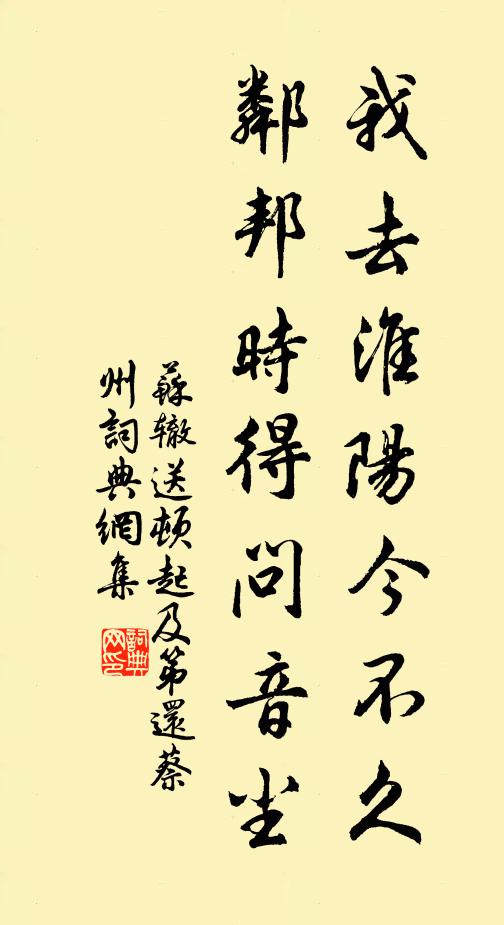 我去淮陽今不久
鄰邦時得問音尘
蘇辙送頓起及第還蔡
州詞典網集
詞典
网印